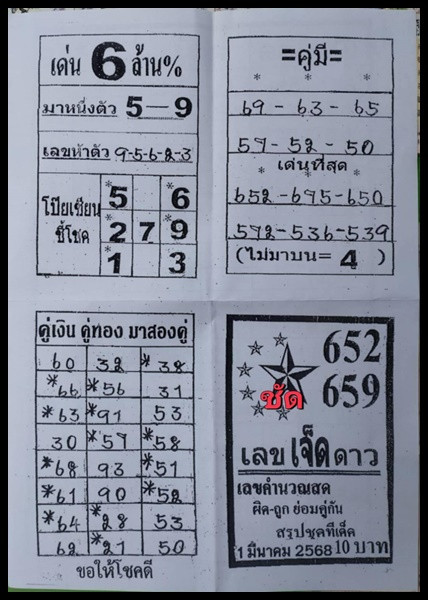 เด่น 6 ล้าน%
มาหนึ่งตัว 5-9
เลขห้าตัว 9-5-6-2-3
โป๊ยเซียน
ชี้โชค
*5 *6
*2 7 *9
1 3
=คู่มี=
* * *
69 - 63 - 65
57 - 52 - 50
เด่นที่สุด
* * *
652 - 695 - 650
572 - 536 - 539
(ไม่มาบน= 4 )
คู่เงิน คู่ทอง มาสองคู่
60 32 *38
*66 *56 31
*63 *91 53
30 *57 *58
*68 93 *51
*61 90 *52
*64 *28 53
62 *21 50
ขอให้โชคดี
652
659
ชัด
เลขเจ็ดดาว
เลขคำนวณสด
ผิด-ถูก ย่อมคู่กัน
สรุปชุดทีเด็ค
1 มีนาคม 2568 10 บาท